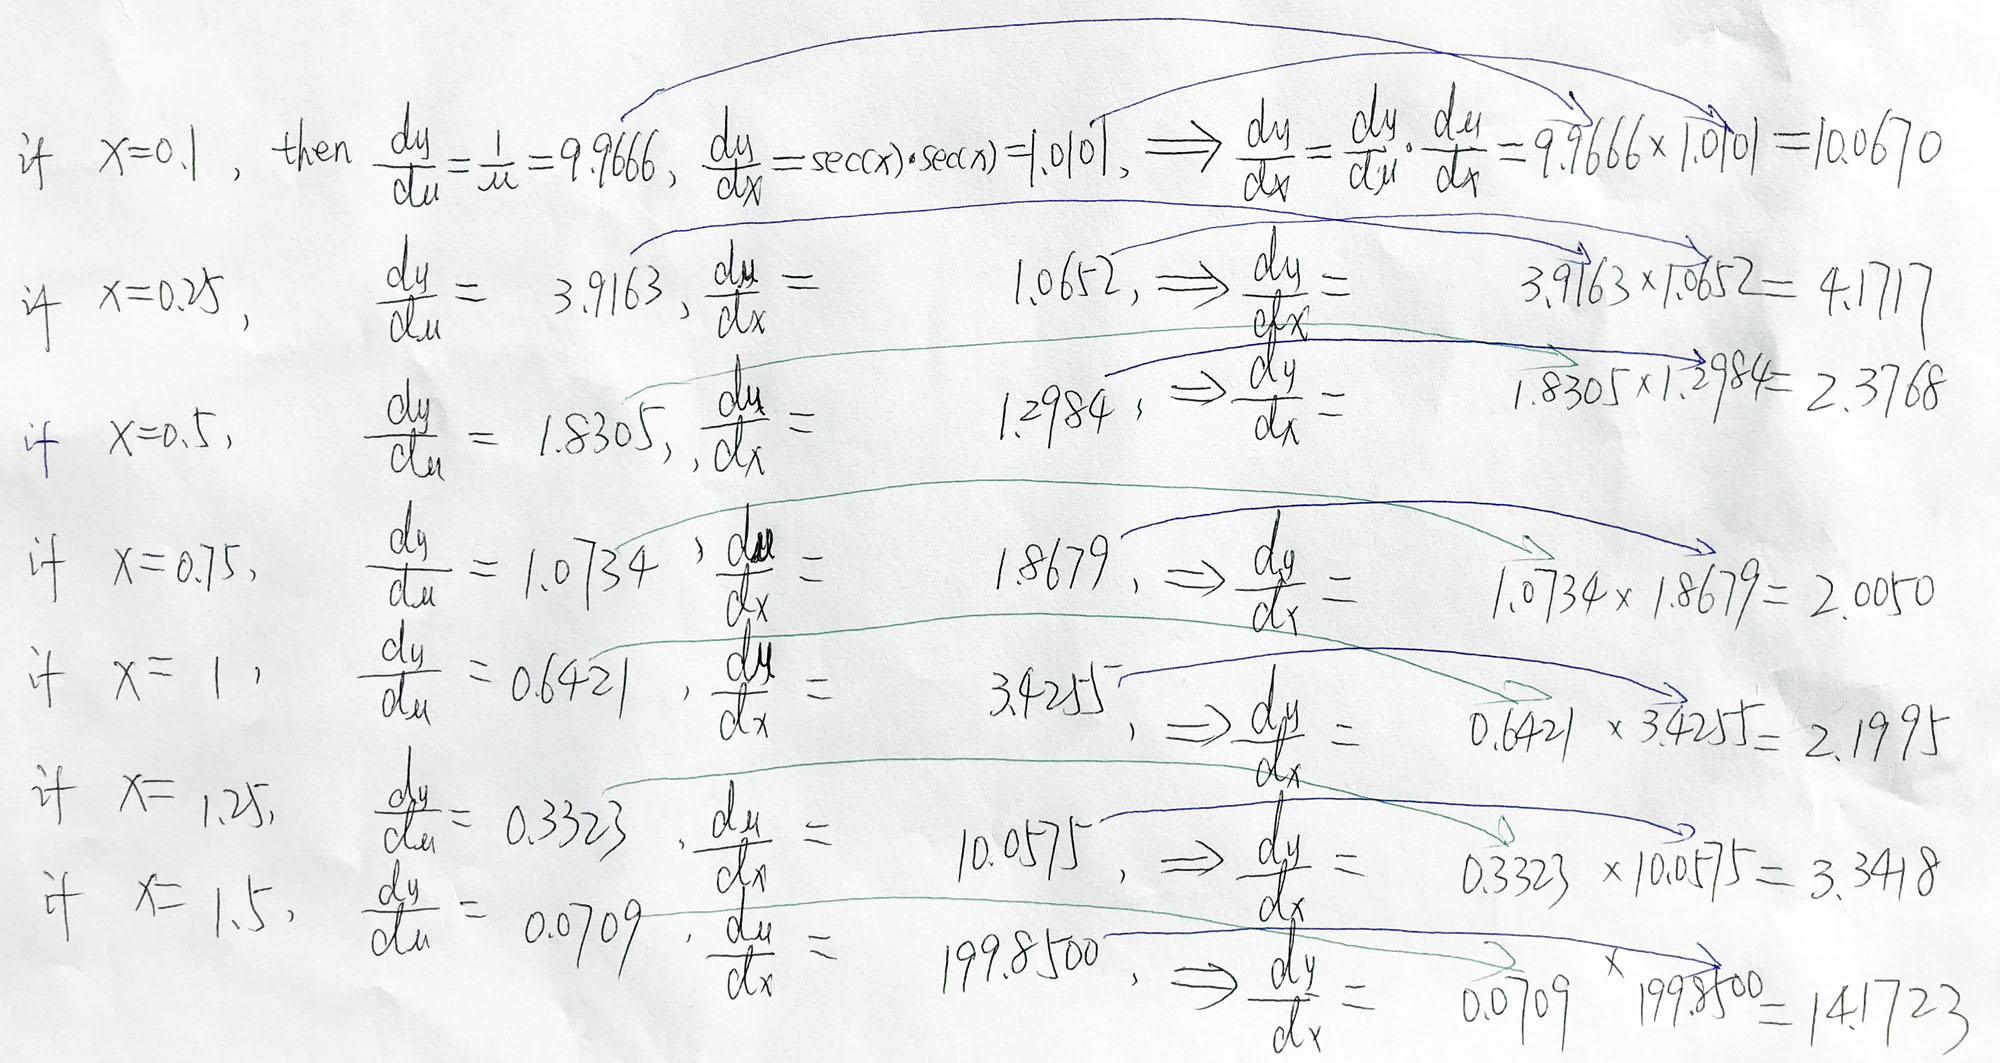 if x=0.1, then dy/du = 1/u = 9.9666, dy/dx = sec(x)·sec(x) = 1.0101, ⟹ dy/dx = dy/du · du/dx = 9.9666 × 1.0101 = 10.0670
if x=0.25, dy/du = 3.9163, du/dx = 1.0652, ⟹ dy/dx = 3.9163 × 1.0652 = 4.1717
if x=0.5, dy/du = 1.8305, du/dx = 1.2984, ⟹ dy/dx = 1.8305 × 1.2984 = 2.3768
if x=0.75, dy/du = 1.0734, du/dx = 1.8679, ⟹ dy/dx = 1.0734 × 1.8679 = 2.0050
if x=1, dy/du = 0.6421, du/dx = 3.4255, ⟹ dy/dx = 0.6421 × 3.4255 = 2.1995
if x=1.25, dy/du = 0.3323, du/dx = 10.0575, ⟹ dy/dx = 0.3323 × 10.0575 = 3.3418
if x=1.5, dy/du = 0.0709, du/dx = 199.8500, ⟹ dy/dx = 0.0709 × 199.8500 = 14.1723